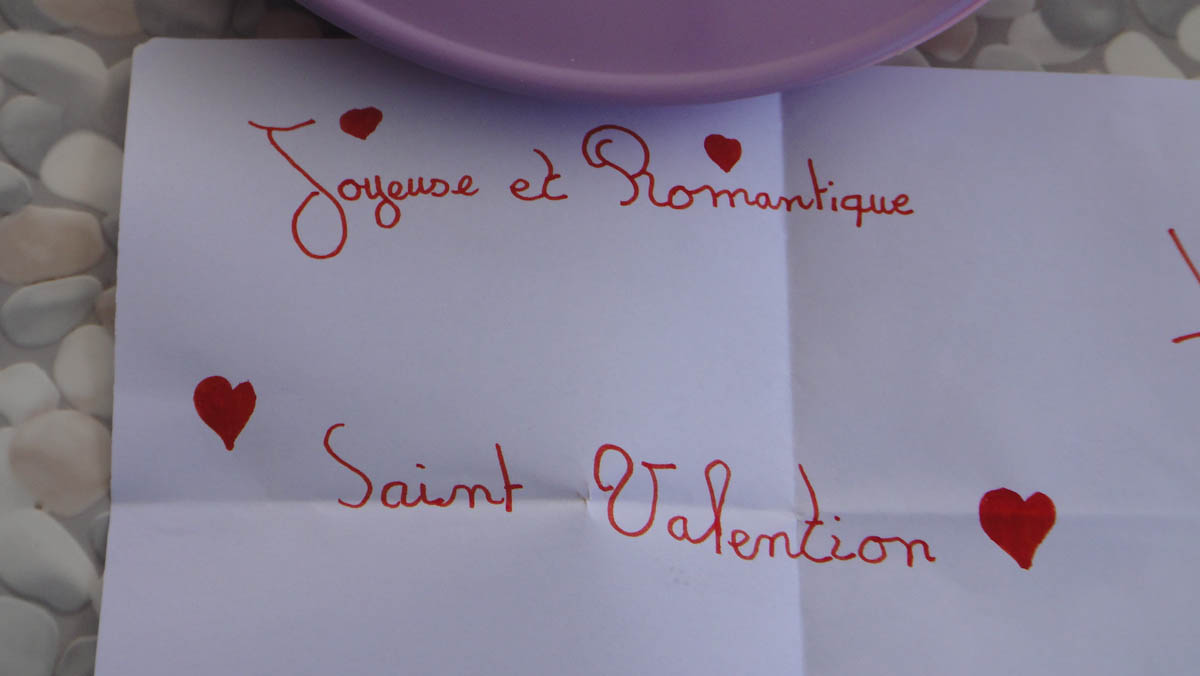 Joyeuse et Romantique
Saint Valention